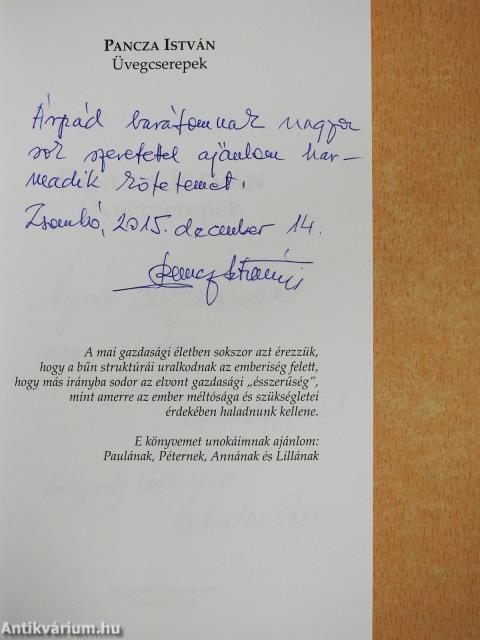 PANCZA ISTVÁN
Üvegcserepek
Árpád barátomnak nagyon
sok szeretettel ajánlom har-
madik kötetemet.
Zsombó, 2015. december 14.
A mai gazdasági életben sokszor azt érezzük,
hogy a bűn struktúrái uralkodnak az emberiség felett,
hogy más irányba sodor az elvont gazdasági „ésszerűség”,
mint amerre az ember méltósága és szükségletei
érdekében haladnunk kellene.
E könyvemet unokáimnak ajánlom:
Paulának, Péternek, Annának és Lillának
Antikvárium.hu